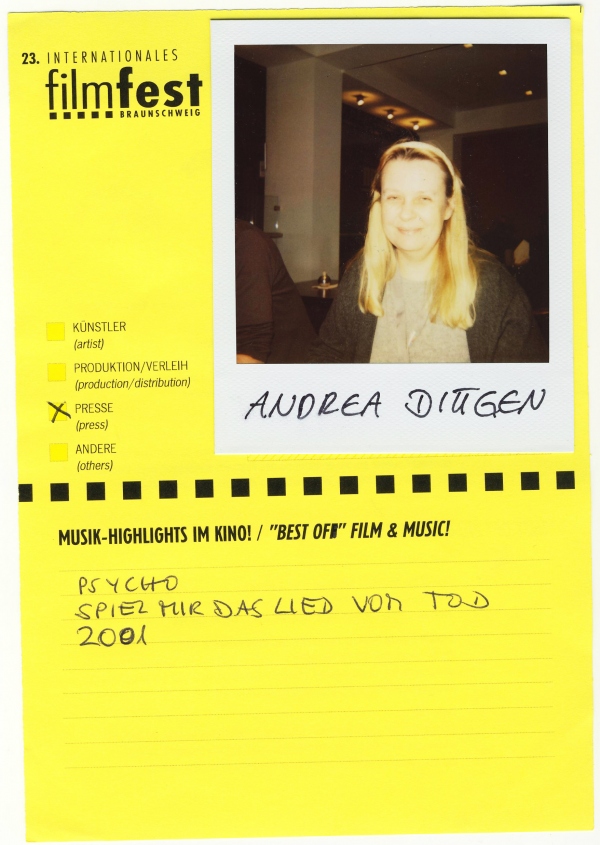 23. INTERNATIONALES
filmfest
BRAUNSCHWEIG
KÜNSTLER
(artist)
PRODUKTION/VERLEIH
(production/distribution)
PRESSE
(press)
ANDERE
(others)
ANDREA DITTGEN
MUSIK-HIGHLIGHTS IM KINO! / "BEST OF" FILM & MUSIC!
PSYCHO
SPIEL MIR DAS LIED VOM TOD
2001